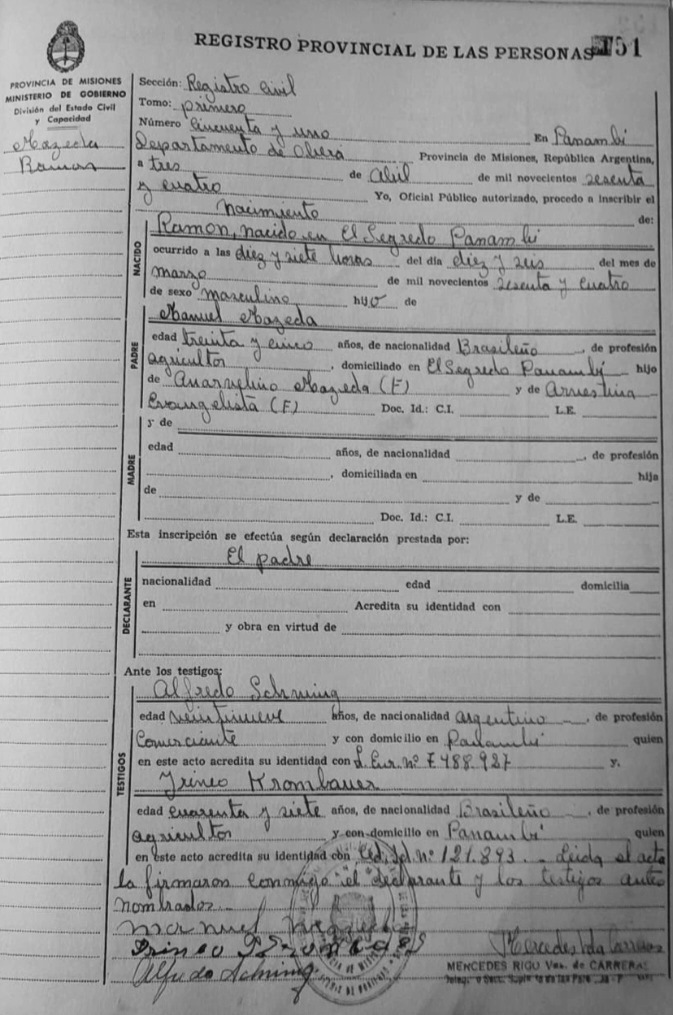 REGISTRO PROVINCIAL DE LAS PERSONAS 51
PROVINCIA DE MISIONES
MINISTERIO DE GOBIERNO
División del Estado Civil
y Capacidad
Mazeda
Ramon
Sección: Registro Civil
Tomo: primero
Número Cincuenta y uno En Panambí
Departamento de Oberá Provincia de Misiones, República Argentina,
a tres de abril de mil novecientos sesenta
y cuatro Yo, Oficial Público autorizado, procedo a inscribir el
nacimiento de:
NACIDO
Ramon, nacido en El Segredo Panambí
ocurrido a las diez y siete horas del día diez y seis del mes de
marzo de mil novecientos sesenta y cuatro
de sexo masculino, hijo de
PADRE
Manuel Mazeda
edad treinta y cinco años, de nacionalidad Brasileño, de profesión
agricultor, domiciliado en El Segredo Panambí hijo
de Mazeda (F) y de Arnestina
Evangelista (F) Doc. Id.: C.I. L.E.
MADRE
y de
edad años, de nacionalidad , de profesión
, domiciliada en hija
de y de
Doc. Id.: C.I. L.E.
Esta inscripción se efectúa según declaración prestada por:
El padre
DECLARANTE
nacionalidad edad domicilia
en Acredita su identidad con
y obra en virtud de
Ante los testigos:
TESTIGOS
Alfredo Schming
edad veintinueve años, de nacionalidad argentino, de profesión
Comerciante y con domicilio en Panambí quien
en este acto acredita su identidad con L. Enr. Nº 7488.927 y.
Irineo Krombauer
edad cuarenta y siete años, de nacionalidad Brasileño, de profesión
agricultor y con domicilio en Panambí quien
en este acto acredita su identidad con Ced. Id. Nº 121.893. - Leida el acta
la firmaron conmigo el declarante y los testigos antes
nombrados
Manuel
Irineo
Alfredo Schming
Mercedes
MERCEDES RIGU Vda. de CARRERAS